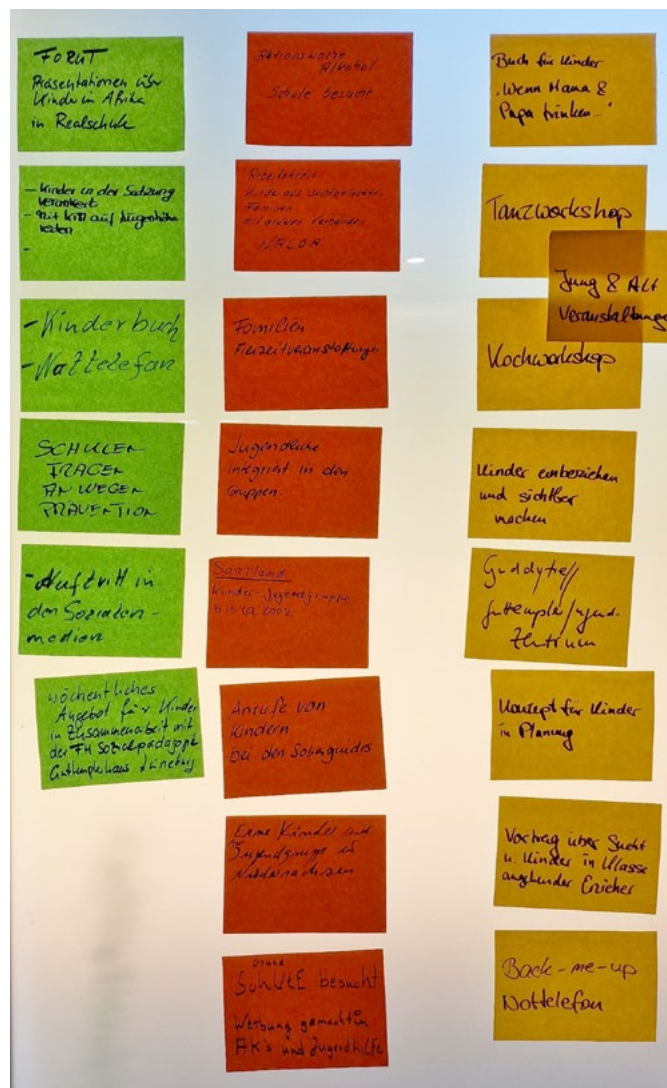 FORUT
Präsentationen über
Kinder in Afrika
in Realschule
- Kinder in der Satzung
verankert
- Mit KiJu auf Augenhöhe
reden
-
- Kinderbuch
- Nottelefon
SCHULEN
FRAGEN
AN WEGEN
PRÄVENTION
- Auftritt in
den Sozialen-
medien
wöchentliches
Angebot für Kinder
in Zusammenarbeit mit
der FH Sozialpädagogik
Guttemplerhaus Lüneburg
Aktionswoche
Alkohol
Schule besuche
Arbeitskreis
Kinder aus suchtbelasteten
Familien
mit anderen Verbänden
Familien
Freizeitveranstaltungen
Jugendliche
integriert in den
Gruppen
Saarland
Kinder-Jugendgruppe
bis ca 2002
Anrufe von
Kindern
bei den Soberguides
Eine Kinder und
Jugendgruppe in
Niedersachsen
Grund
SCHULE besucht
Werbung gemacht in
AK's und Jugendhilfe
Buch für Kinder
"Wenn Mama &
Papa trinken..."
Tanzworkshop
Jung & Alt
Veranstaltunge
Kochworkshop
Kinder einbeziehen
und sichtbar
machen
Guddytreff
Guttempler/Jugend-
Zentrum
Konzept für Kinder
in Planung
Vortrag über Sucht
u. Kinder in Klasse
angehender Erzieher
Back-me-up
Nottelefon